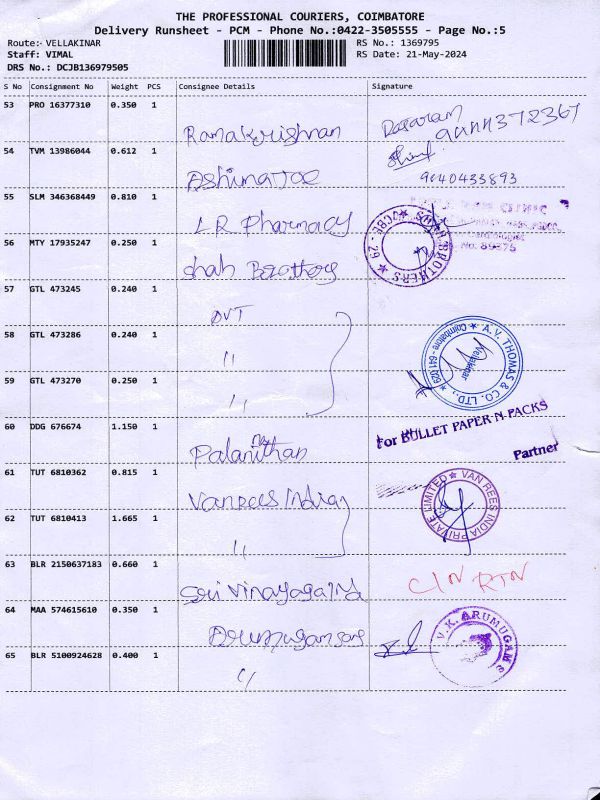 THE PROFESSIONAL COURIERS, COIMBATORE
Delivery Runsheet - PCM - Phone No.:0422-3505555 - Page No.:5
Route:- VELLAKINAR RS No.: 1369795
Staff: VIMAL RS Date: 21-May-2024
DRS No.: DCJB136979505
S No Consignment No Weight PCS Consignee Details Signature
53 PRO 16377310 0.350 1
Ramakrishnan
54 TVM 13986044 0.612 1
9040433893
55 SLM 346368449 0.810 1
LR Pharmacy
CLINIC
No: 89375
56 MTY 17935247 0.250 1
Shah Brothers
BROTHERS
57 GTL 473245 0.240 1
AVT
58 GTL 473286 0.240 1
"
A.V. THOMAS & CO. LTD.,
Vellakinar
Coimbatore - 641
59 GTL 473270 0.250 1
"
60 DDG 676674 1.150 1
For BULLET PAPER N PACKS
Partner
61 TUT 6810362 0.815 1
Vanrees India
VAN REES INDIA PRIVATE LIMITED
62 TUT 6810413 1.665 1
"
63 BLR 2150637183 0.660 1
Sri Vinayaga
C/N RTN
64 MAA 574615610 0.350 1
V.K. ARUMUGAM
65 BLR 5100924628 0.400 1
"